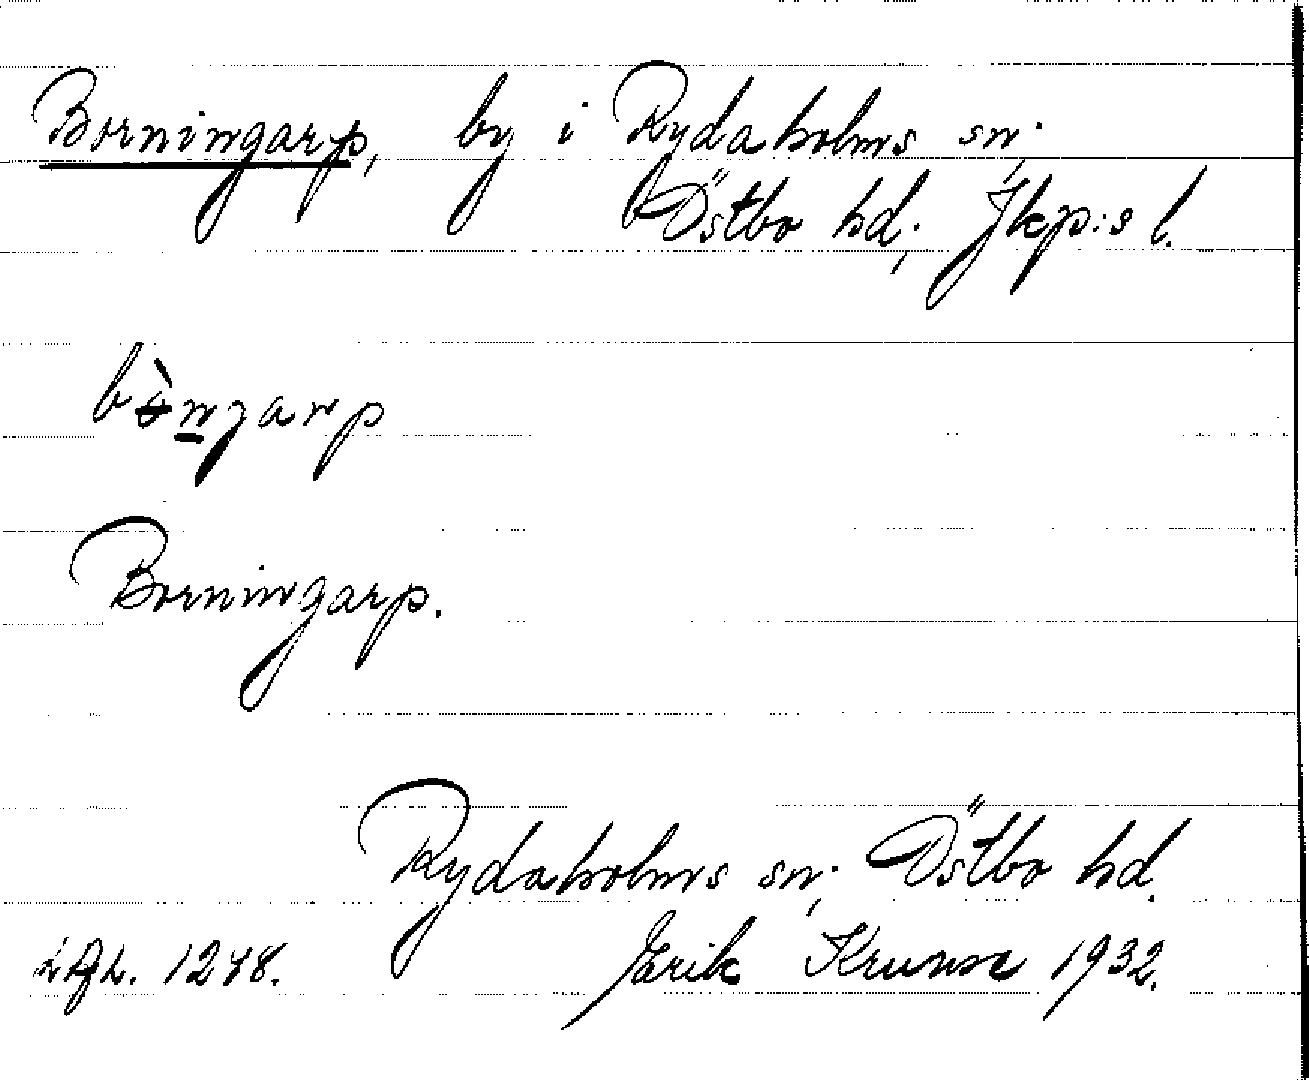 Borningarp, by i Rydaholms sn;
Östbo hd; Jkp:s l.
Borningarp.
Rydaholms sn; Östbo hd.
1248. Erik 1932.